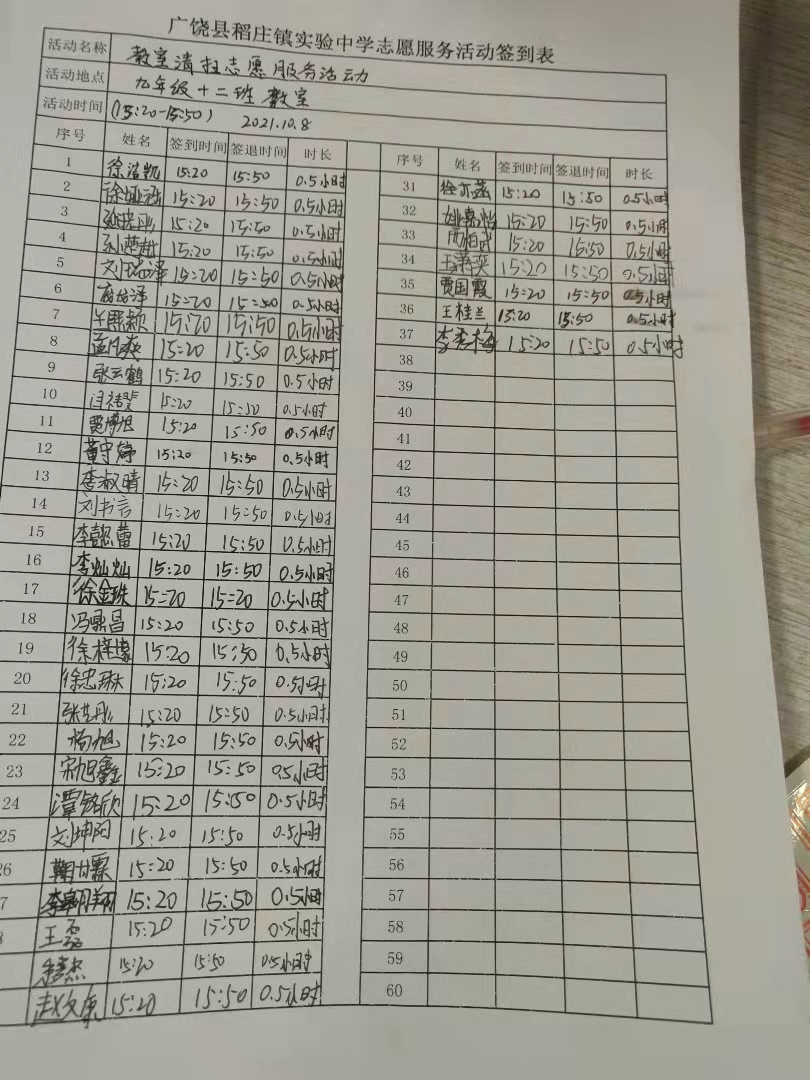 广饶县稻庄镇实验中学志愿服务活动签到表
活动名称 教室清扫志愿服务活动
活动地点 九年级十二班教室
活动时间 (15:20-15:50) 2021.10.8
序号 姓名 签到时间 签退时间 时长
1 徐洁凯 15:20 15:50 0.5小时
2 15:20 15:50 0.5小时
3 15:20 15:50 0.5小时
4 孙楚甜 15:20 15:50 0.5小时
5 刘瑞泽 15:20 15:50 0.5小时
6 15:20 15:50 0.5小时
7 15:20 15:50 0.5小时
8 15:20 15:50 0.5小时
9 张云鹤 15:20 15:50 0.5小时
10 15:20 15:50 0.5小时
11 贾博旭 15:20 15:50 0.5小时
12 董守婷 15:20 15:50 0.5小时
13 李淑晴 15:20 15:50 0.5小时
14 刘书言 15:20 15:50 0.5小时
15 李懿蕾 15:20 15:50 0.5小时
16 李灿灿 15:20 15:50 0.5小时
17 徐金珠 15=20 15=20 0.5小时
18 冯鼎昌 15:20 15:50 0.5小时
19 徐梓濛 15:20 15:50 0.5小时
20 徐忠琳 15:20 15:50 0.5小时
21 张艺彤 15:20 15:50 0.5小时
22 杨旭 15:20 15:50 0.5小时
23 宋旭鑫 15:20 15:50 0.5小时
24 潭铭欣 15:20 15:50 0.5小时
25 刘坤阳 15:20 15:50 0.5小时
26 15:20 15:50 0.5小时
7 李翱翔 15:20 15:50 0.5小时
王磊 15:20 15:50 0.5小时
15:20 15:50 0.5小时
赵文康 15:20 15:50 0.5小时
序号 姓名 签到时间 签退时间 时长
31 徐亦菡 15:20 15:50 0.5小时
32 姚嘉怡 15:20 15:50 0.5小时
33 15:20 15:50 0.5小时
34 15:20 15:50 0.5小时
35 贾国霞 15=20 15=50 0.5小时
36 王桂兰 15:20 15:50 0.5小时
37 李秀梅 15:20 15:50 0.5小时
38
39
40
41
42
43
44
45
46
47
48
49
50
51
52
53
54
55
56
57
58
59
60